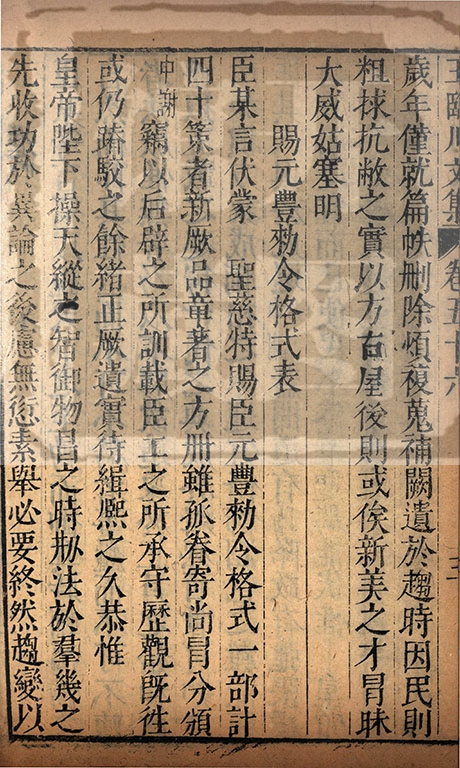 王臨川文集 卷五十六 五
歲年僅就篇帙刪除煩複蒐補闕遺於趨時因民則
粗捄抗敝之實以方右屋後則或俟新美之才冒昧
大威姑塞明
賜元豐勑令格式表
臣某言伏蒙 聖慈特賜臣元豐勑令格式一部計
四十策者新厥品章著之方冊雖孤眷寄尚冒分頒
中謝竊以后辟之所訓載臣工之所承守歷觀旣徃
或仍踳駮之餘緒正厥遺實待緝熙之久恭惟
皇帝陛下操天縱之智御物昌之時刱法於羣幾之
先收功於異論之後慮無愆素舉必要終然趨變以